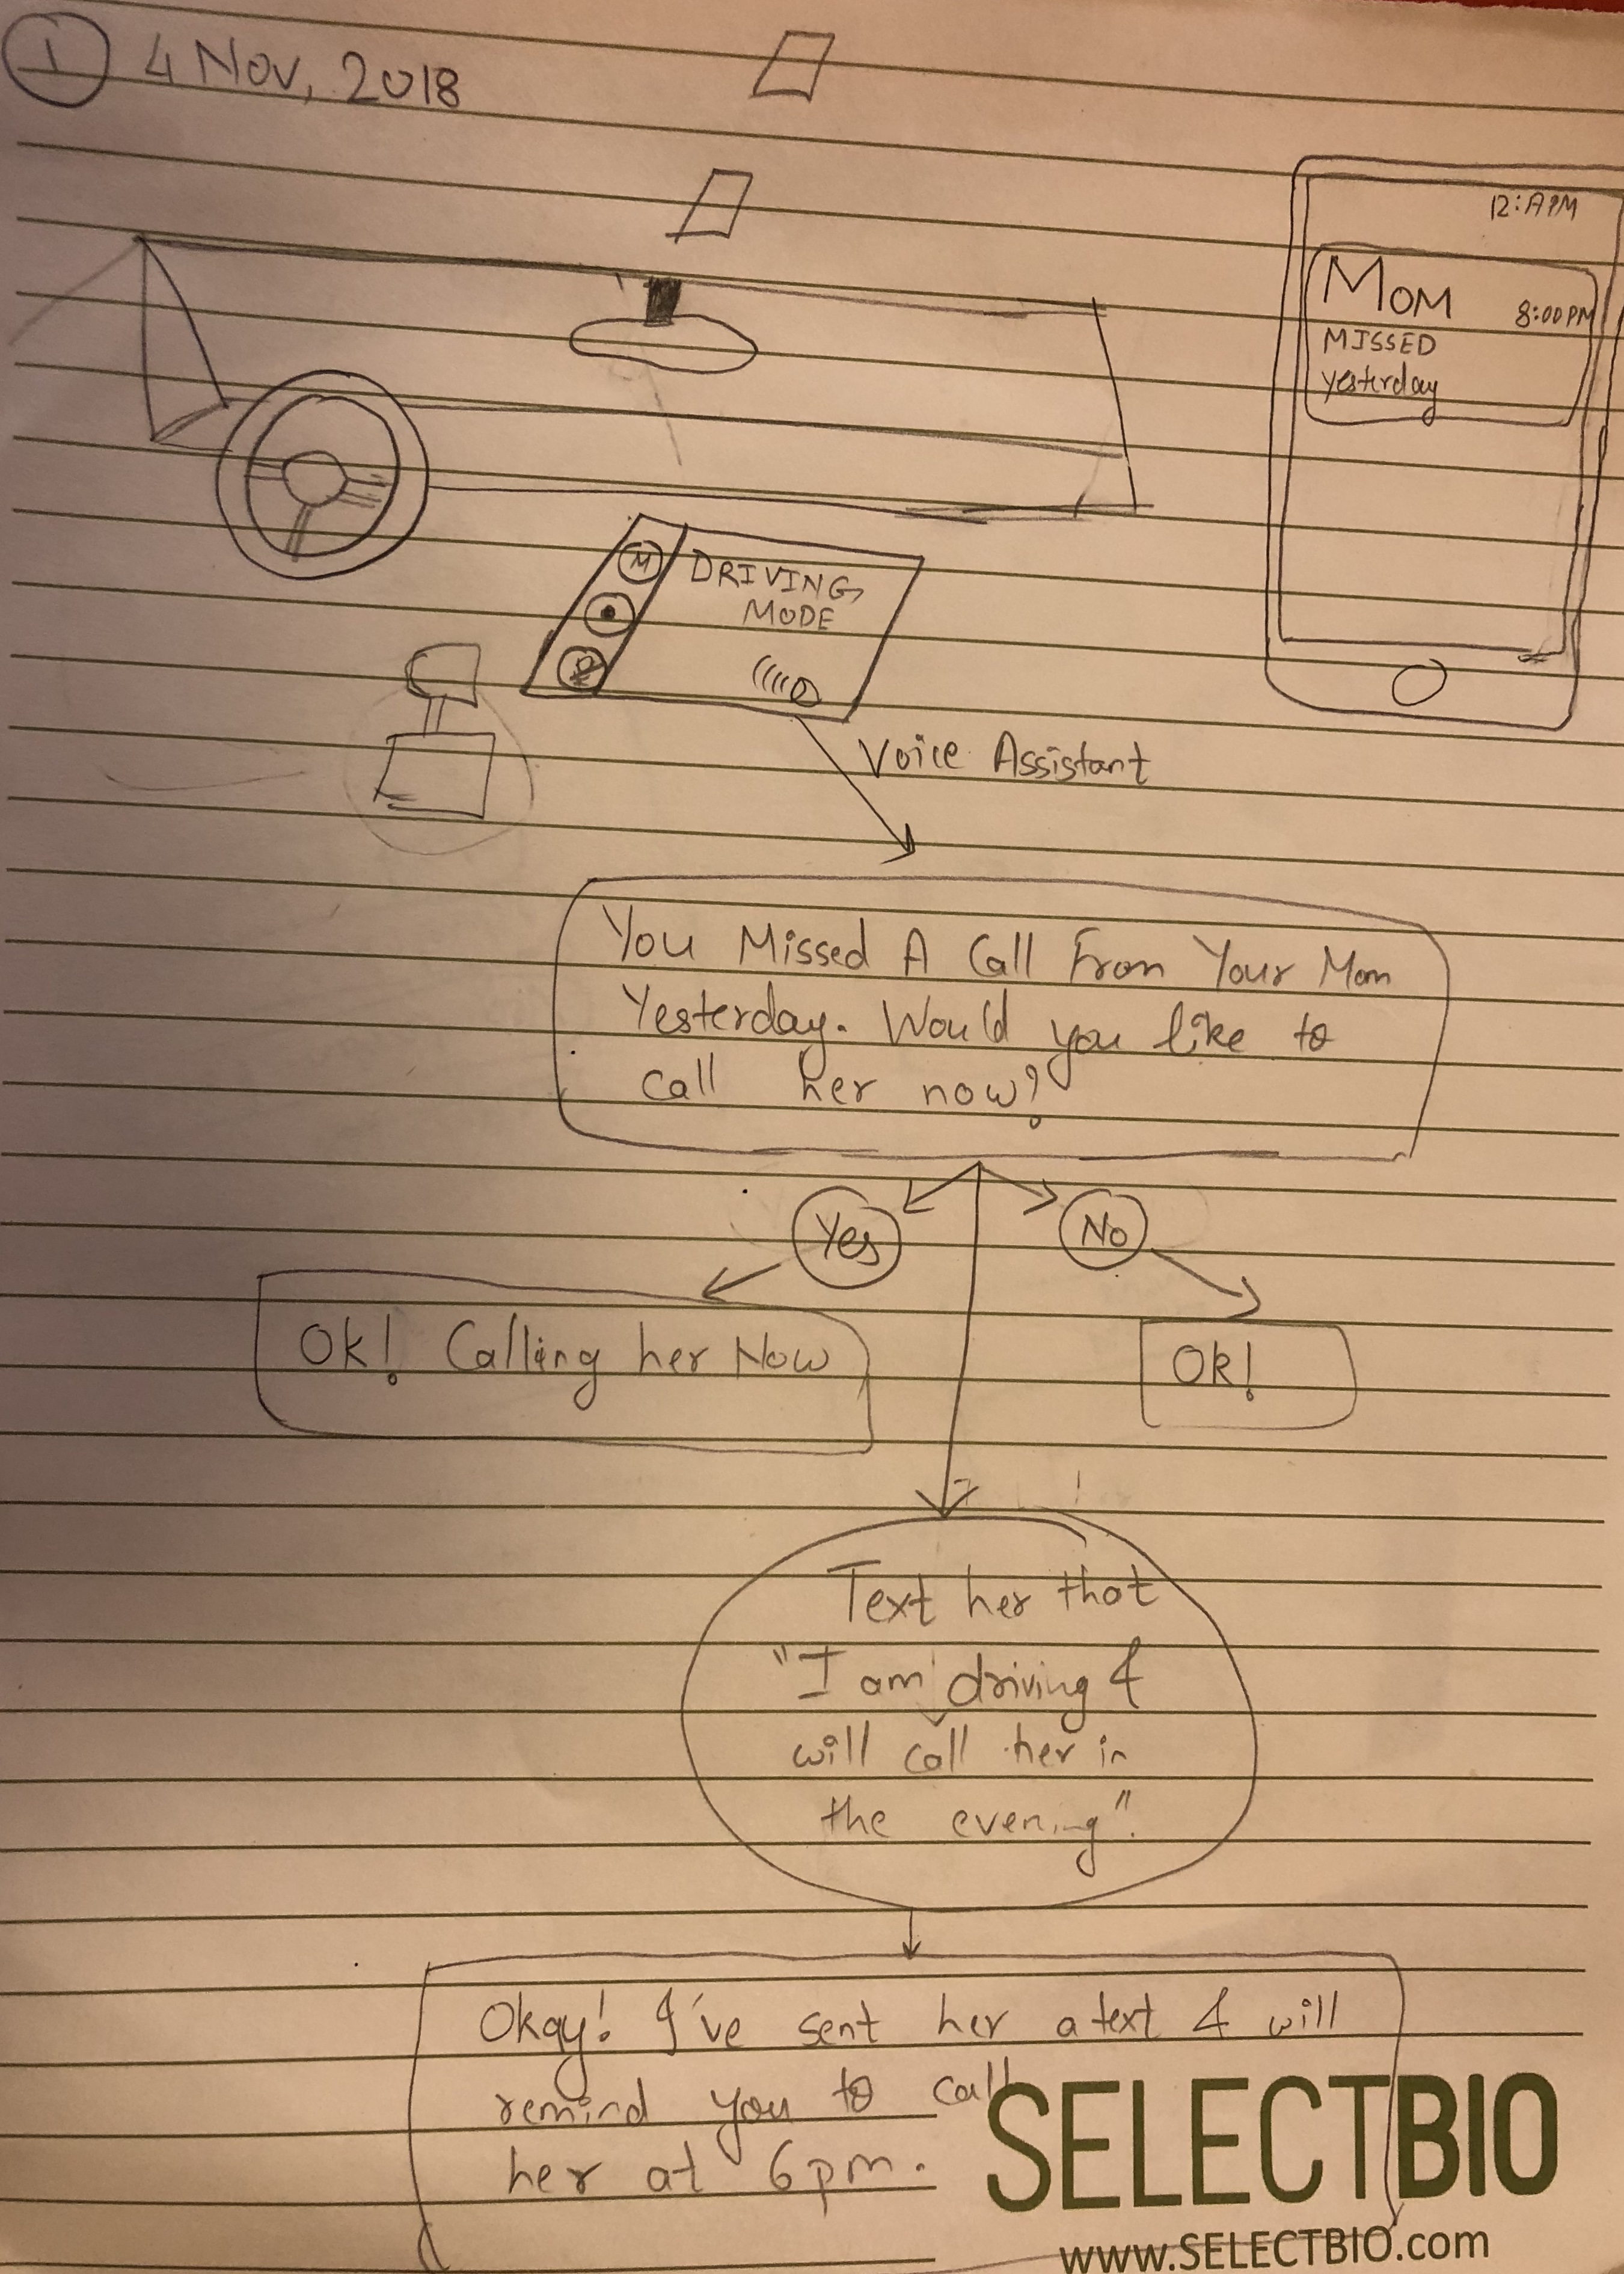 1 4 Nov, 2018
12:APM
Mom 8:00PM
MISSED
yesterday
M DRIVING
MODE
Voice Assistant
You Missed A Call From Your Mom
Yesterday. Would you like to
call her now?
Yes
No
Ok! Calling her Now
Ok!
Text her that
"I am driving &
will call her in
the evening".
Okay! I've sent her a text & will
remind you to call
her at 6pm.
SELECTBIO
www.SELECTBIO.com